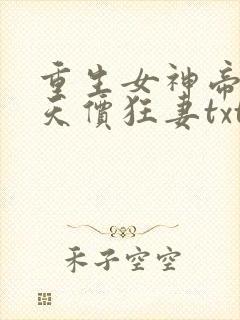 重生女神帝
天價狂妻txt
禾子空空